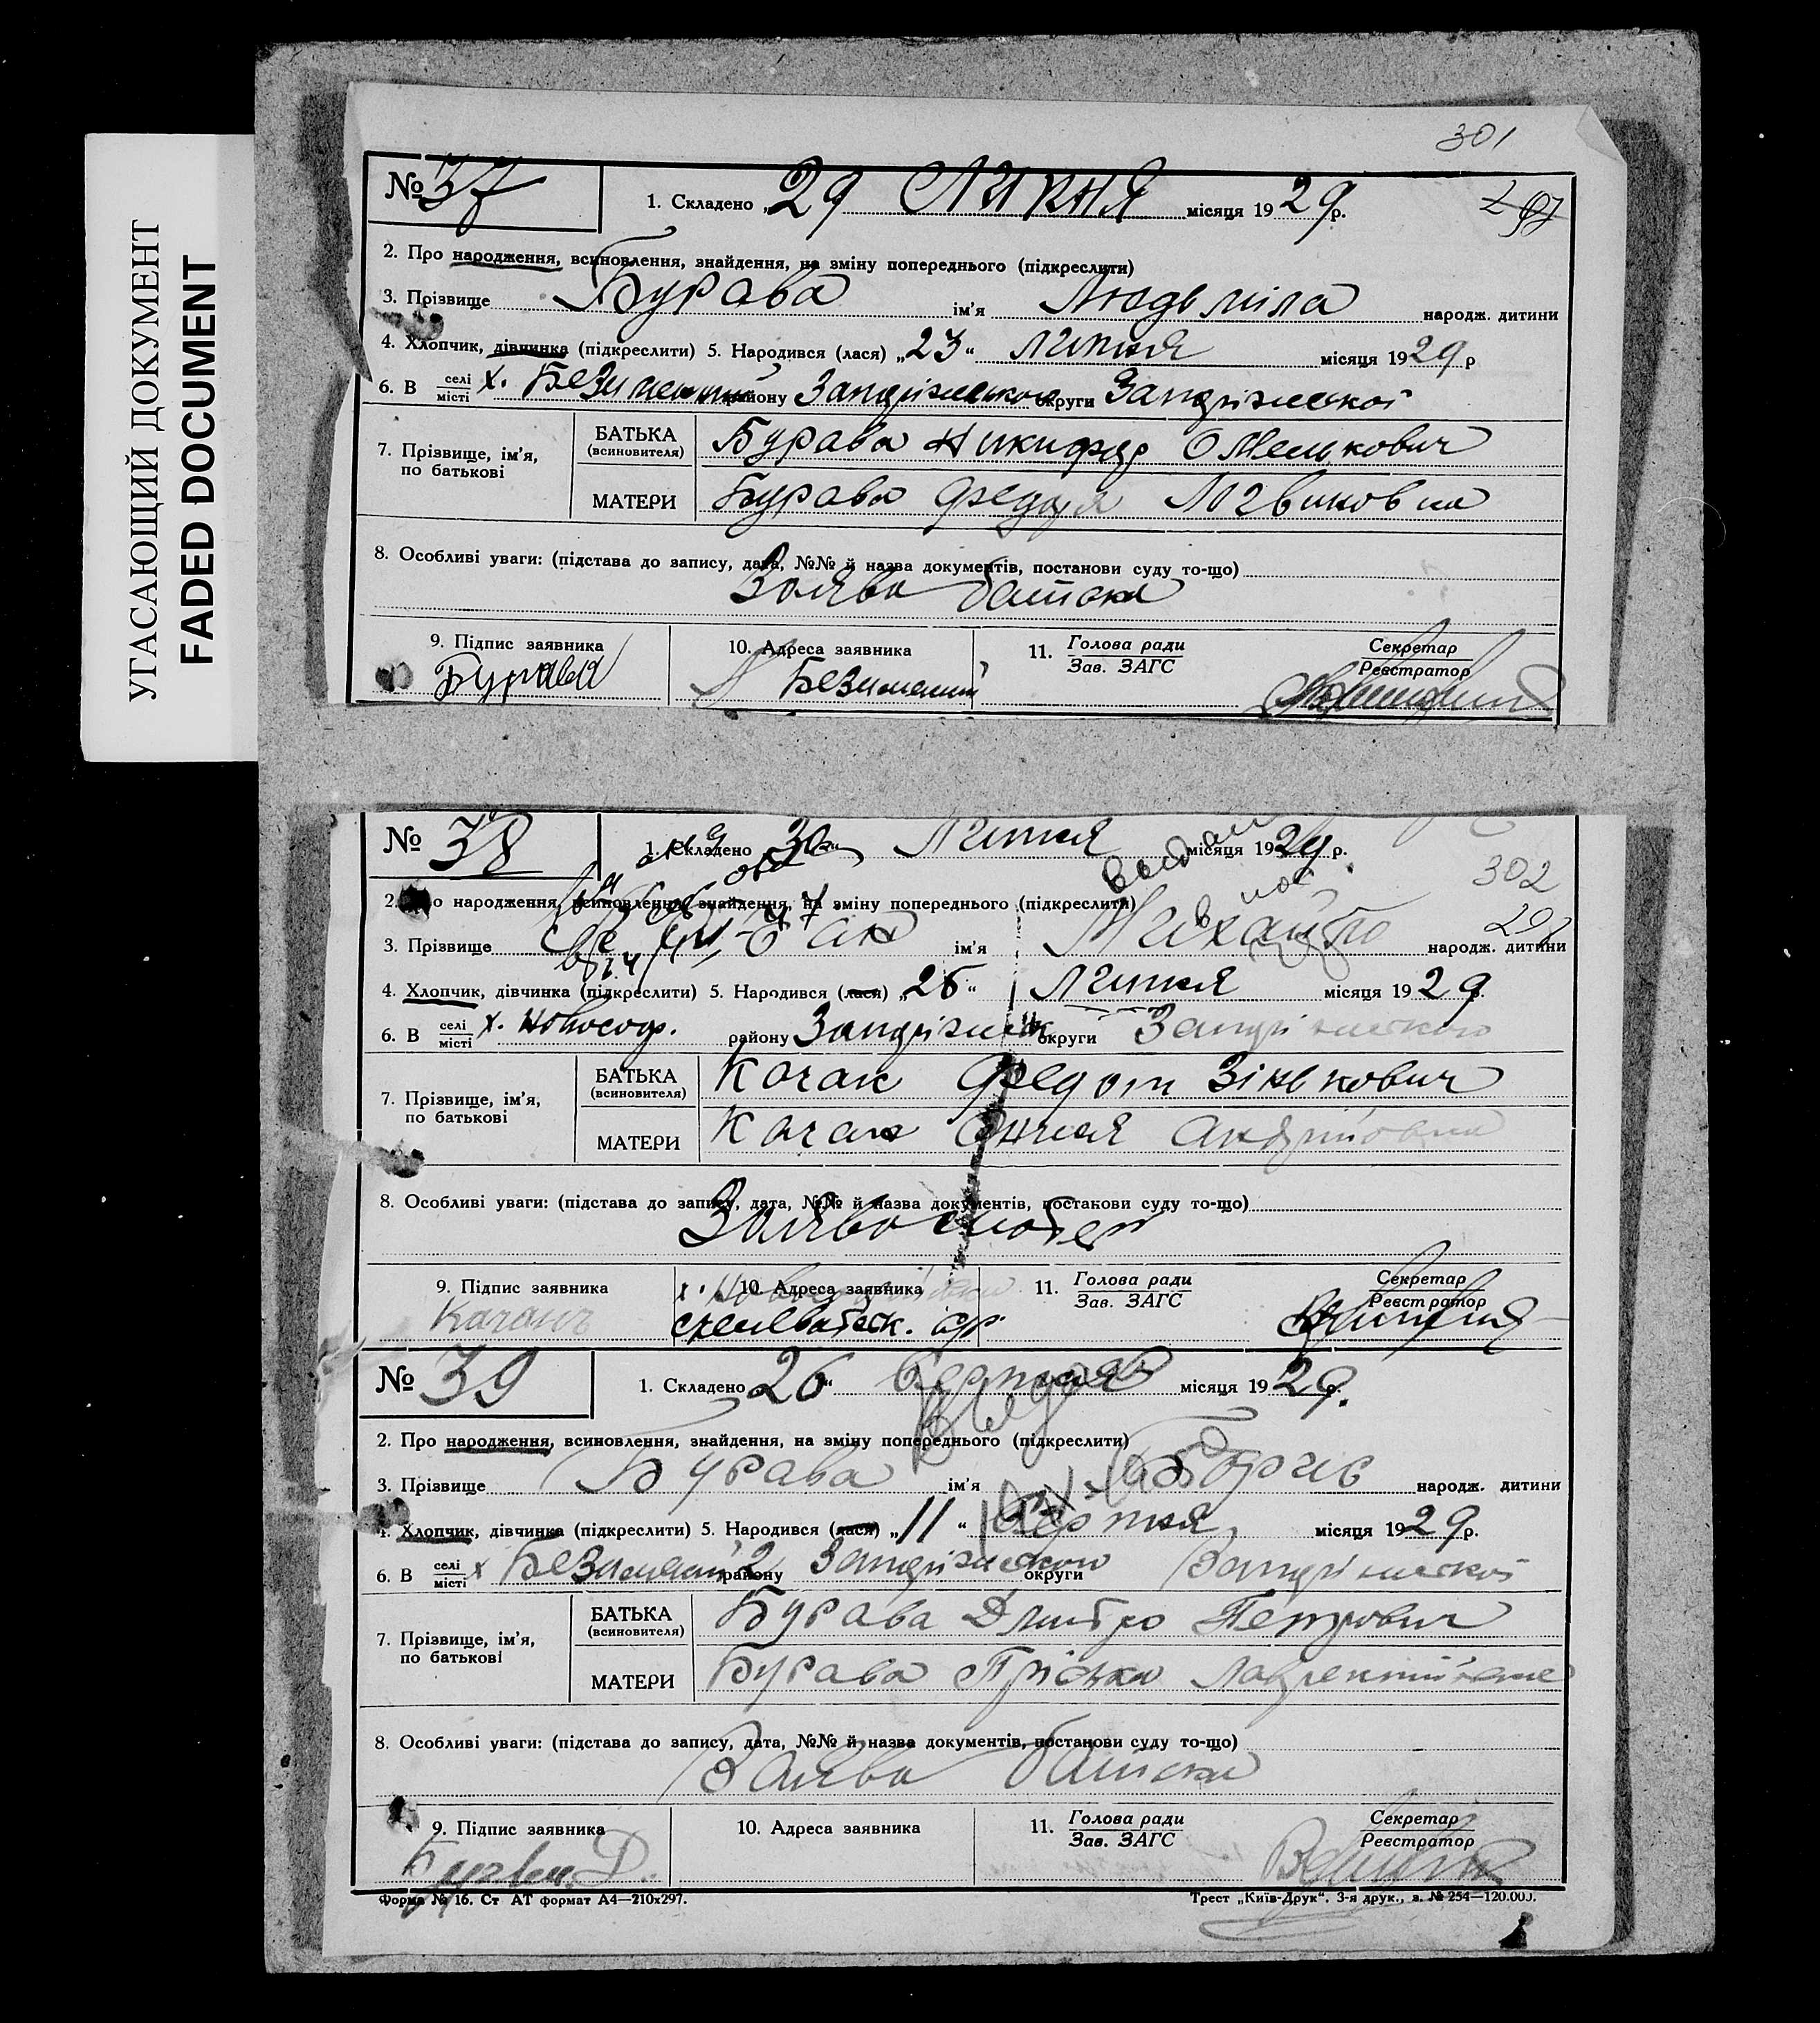 УГАСАЮЩИЙ ДОКУМЕНТ
FADED DOCUMENT
301
№ 37
1. Складено „29 Липня місяця 1929 р.
297
2. Про народження, всиновлення, знайдення, на зміну попереднього (підкреслити)
3. Прізвище Бурава ім'я Людьміла народж. дитини
4. Хлопчик, дівчинка (підкреслити) 5. Народився (лася) „23“ липня місяця 1929 р
6. В селі місті х. Безименний району Запоріжського округи Запоріжської
7. Прізвище, ім'я, по батькові
БАТЬКА (всиновителя) Бурава Никифор Омелькович
МАТЕРИ Бурава Федора
8. Особливі уваги: (підстава до запису, дата, №№ й назва документів, постанови суду то-що)
Заява батька
9. Підпис заявника 10. Адреса заявника 11. Голова ради Зав. ЗАГС Секретар Реєстратор
Бурава Безименний
№ 38
1. Складено 30 Липня місяця 1929 р.
302
2. Про народження, всиновлення, знайдення, на зміну попереднього (підкреслити)
3. Прізвище ім'я Михайло народж. дитини
4. Хлопчик, дівчинка (підкреслити) 5. Народився (лася) „25“ Липня місяця 1929 р.
6. В селі місті х. Новософ. району Запоріжськ округи Запоріжської
7. Прізвище, ім'я, по батькові
БАТЬКА (всиновителя) Качан Федот Зінькович
МАТЕРИ Качан Андріївна
8. Особливі уваги: (підстава до запису, дата, №№ й назва документів, постанови суду то-що)
Заява матері
9. Підпис заявника 10. Адреса заявника 11. Голова ради Зав. ЗАГС Секретар Реєстратор
Качанъ
№ 39
1. Складено 26“ серпня місяця 1929 р.
2. Про народження, всиновлення, знайдення, на зміну попереднього (підкреслити)
3. Прізвище Бурава ім'я Боргис народж. дитини
4. Хлопчик, дівчинка (підкреслити) 5. Народився (лася) „11“ Серпня місяця 1929 р.
6. В селі місті х Безименний 2 району Запоріжського округи Запоріжської
7. Прізвище, ім'я, по батькові
БАТЬКА (всиновителя) Бурава Дмитро Петрович
МАТЕРИ Бурава Пріська
8. Особливі уваги: (підстава до запису, дата, №№ й назва документів, постанови суду то-що)
Заява батька
9. Підпис заявника 10. Адреса заявника 11. Голова ради Зав. ЗАГС Секретар Реєстратор
Форма № 16. Ст АТ формат А4—210х297.
Трест „Київ-Друк“. 3-я друк., з. № 254—120.000.